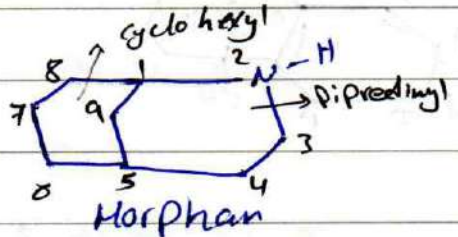 cyclohexyl
8 1 2 N-H
7 9 → pipredinyl
3
6 5 4
Morphan